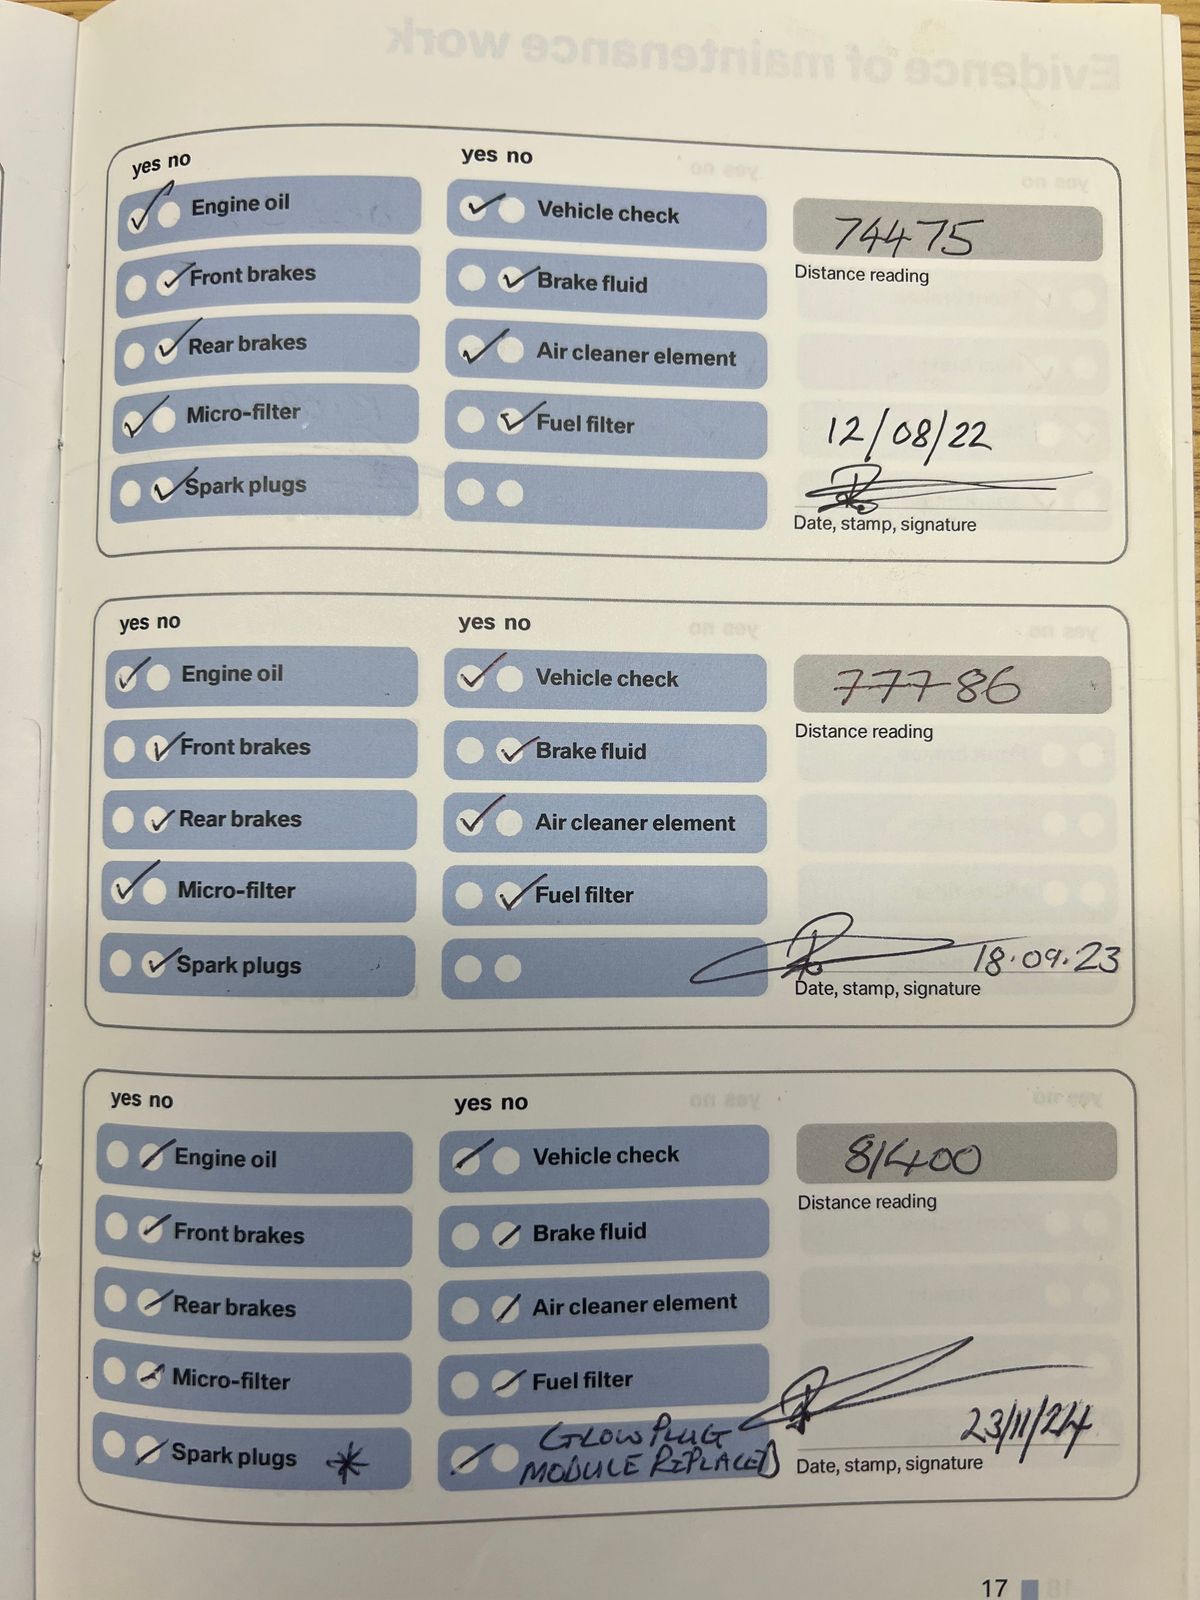 Evidence of maintenance work
yes no
yes no
Engine oil
Vehicle check
74475
Distance reading
Front brakes
Brake fluid
Rear brakes
Air cleaner element
Micro-filter
Fuel filter
12/08/22
Spark plugs
Date, stamp, signature
yes no
yes no
Engine oil
Vehicle check
77786
Distance reading
Front brakes
Brake fluid
Rear brakes
Air cleaner element
Micro-filter
Fuel filter
Spark plugs
18.09.23
Date, stamp, signature
yes no
yes no
Engine oil
Vehicle check
81400
Distance reading
Front brakes
Brake fluid
Rear brakes
Air cleaner element
Micro-filter
Fuel filter
Spark plugs *
GLOW PLUG
MODULE REPLACED
23/11/24
Date, stamp, signature
17